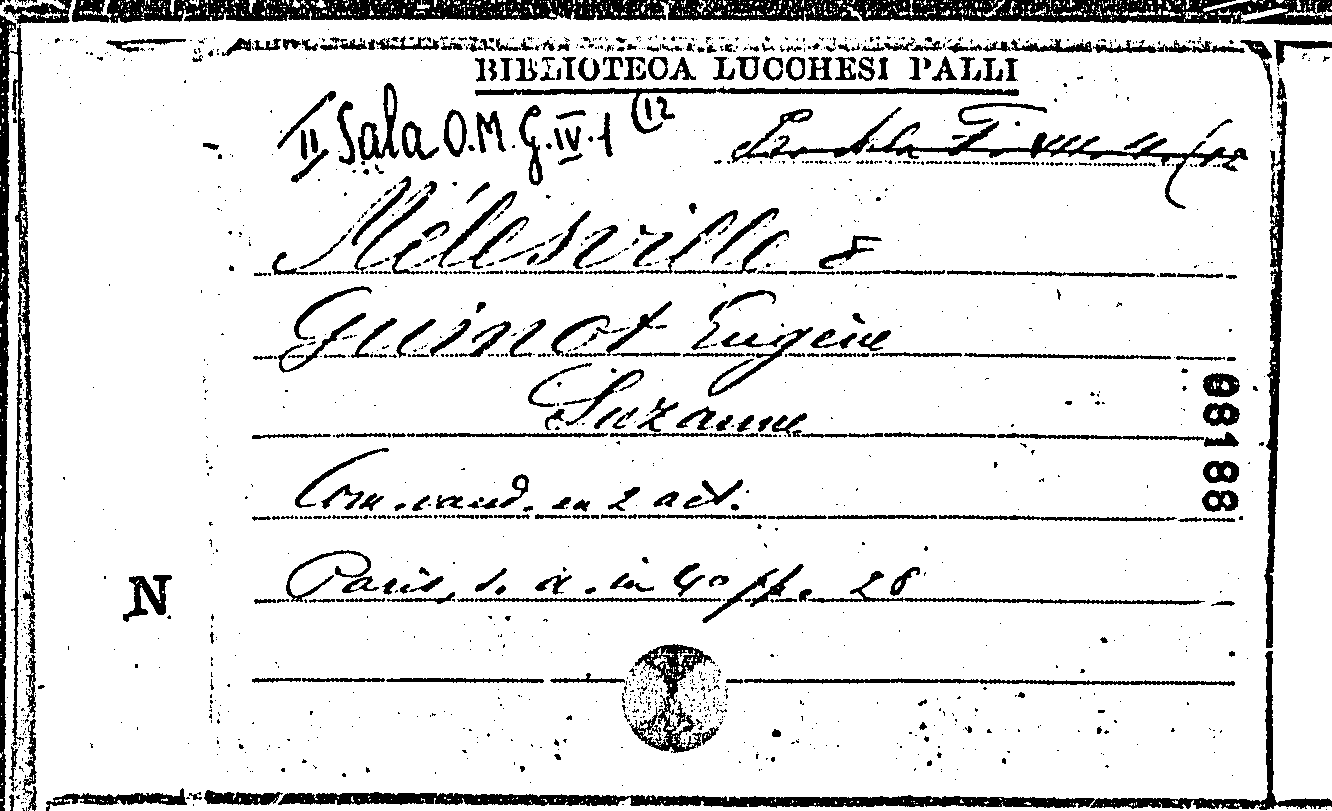 BIBLIOTECA LUCCHESI PALLI
II Sala O.M. G.IV.1 (12
Mélesville &
Guinot Eugène
Suzanne
Com. vaud. en 2 act.
Paris, s. d. in 4º pp. 28
08188
N